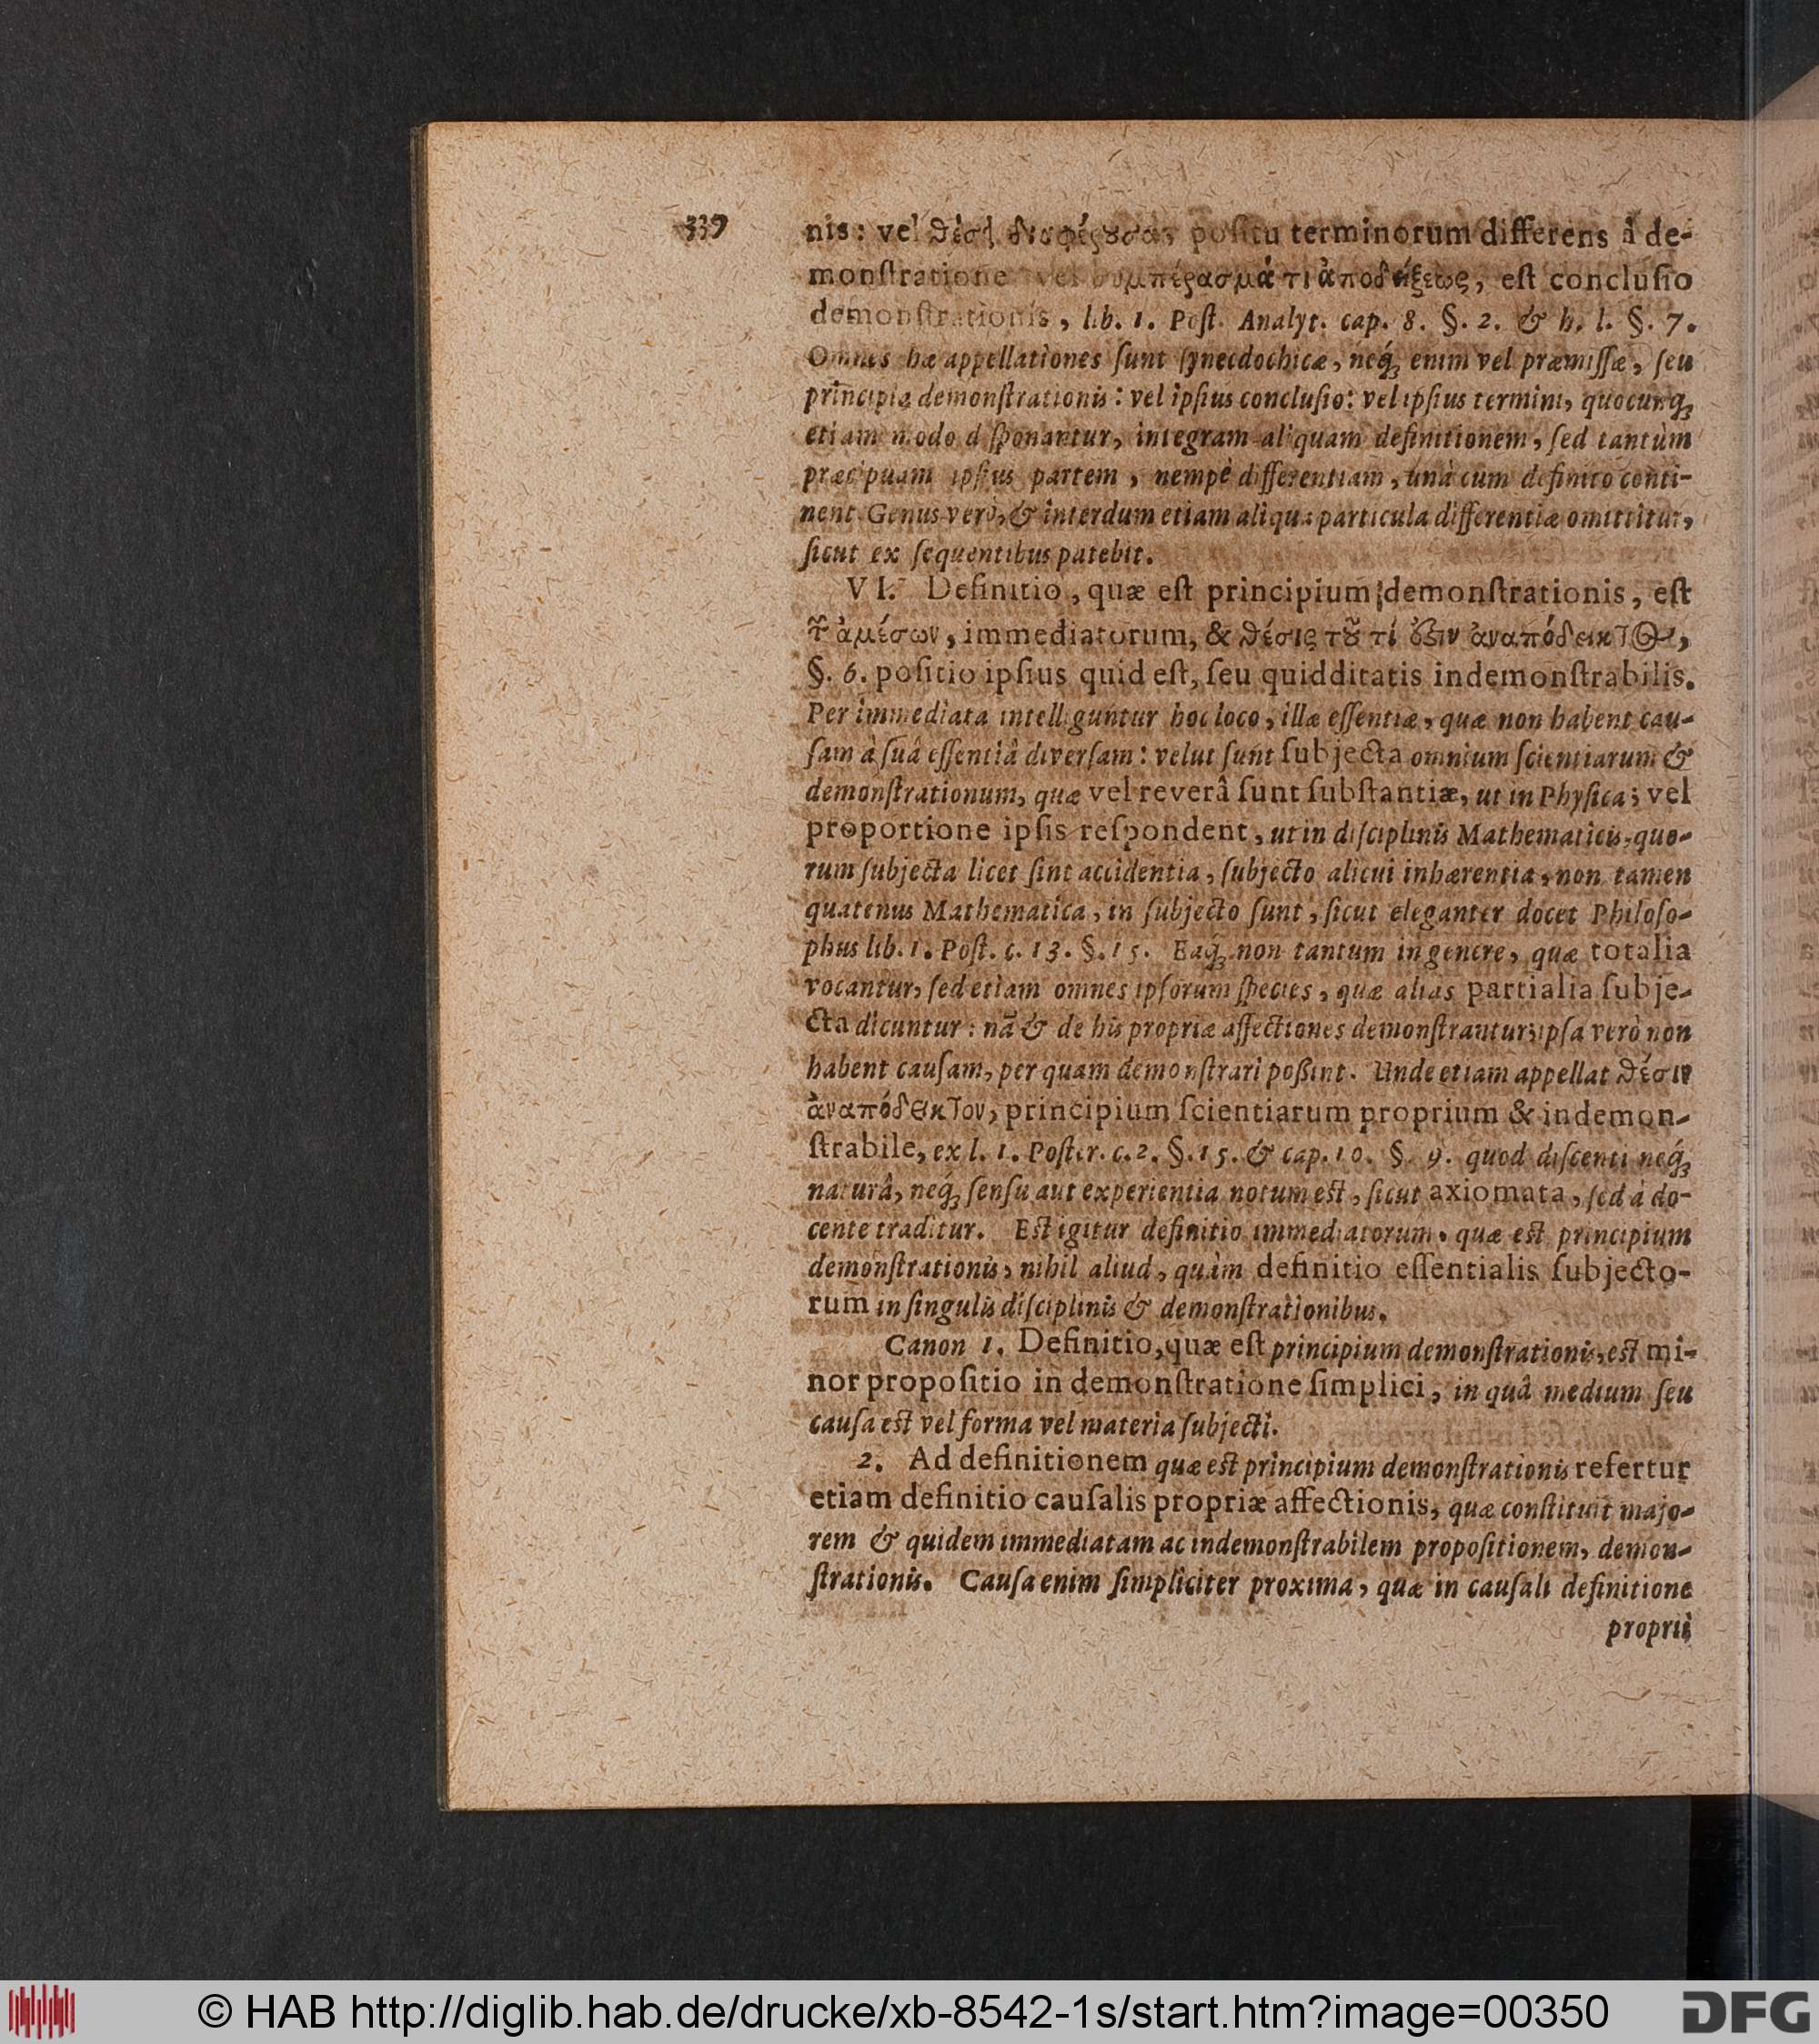 339
nis: vel θέσει διαφέρουσα, positu terminorum differens â de-
monſtratione vel συμπέρασμά τι ἀποδείξεως, eſt concluſio
demonſtrationis, lib. 1. Poſt. Analyt. cap. 8. §. 2. & h. l. §. 7.
Omnes hæ appellationes ſunt ſynecdochicæ, neq́ꝫ enim vel præmiſſæ, ſeu
principia demonſtrationis: vel ipſius concluſio: vel ipſius termini, quocunqꝫ
etiam modo diſponantur, integram aliquam definitionem, ſed tantùm
præcipuam ipſius partem, nempè differentiam, unà cum definito conti-
nent. Genus verò, & interdum etiam aliqua particula differentiæ omittitur,
ſicut ex ſequentibus patebit.
VI. Definitio, quæ eſt principium demonſtrationis, eſt
τῶν ἀμέσων, immediatorum, & θέσις τοῦ τί ἐστιν ἀναπόδεικτος,
§. 6. poſitio ipſius quid eſt, ſeu quidditatis indemonſtrabilis.
Per immediata intelliguntur hoc loco, illæ eſſentiæ, quæ non habent cau-
ſam à ſuâ eſſentiâ diverſam: velut ſunt ſubjecta omnium ſcientiarum &
demonſtrationum, quæ vel reverâ ſunt ſubſtantiæ, ut in Phyſica; vel
proportione ipſis reſpondent, ut in diſciplinis Mathematicis, quo-
rum ſubjecta licet ſint accidentia, ſubjecto alicui inhærentia, non tamen
quatenus Mathematica, in ſubjecto ſunt, ſicut eleganter docet Philoſo-
phus lib. 1. Poſt. c. 13. §. 15. Eaq́ꝫ non tantum in genere, quæ totalia
vocantur, ſed etiam omnes ipſorum ſpecies, quæ alias partialia ſubje-
cta dicuntur: nā & de his propriæ affectiones demonſtrantur, ipſa verò non
habent cauſam, per quam demonſtrari poßint. Unde etiam appellat θέσιν
ἀναπόδεικτον, principium ſcientiarum proprium & indemon-
ſtrabile, ex l. 1. Poſter. c. 2. §. 15. & cap. 10. §. 9. quod diſcenti neq́ꝫ
naturâ, neq́ꝫ ſenſu aut experientia notum eſt, ſicut axiomata, ſed à do-
cente traditur. Eſt igitur definitio immediatorum, quæ eſt principium
demonſtrationis, nihil aliud, quàm definitio eſſentialis ſubjecto-
rum in ſingulis diſciplinis & demonſtrationibus.
Canon 1. Definitio, quæ eſt principium demonſtrationis, eſt mi-
nor propoſitio in demonſtratione ſimplici, in quâ medium ſeu
cauſa eſt vel forma vel materia ſubjecti.
2. Ad definitionem quæ eſt principium demonſtrationis refertur
etiam definitio cauſalis propriæ affectionis, quæ conſtituit majo-
rem & quidem immediatam ac indemonſtrabilem propoſitionem, demon-
ſtrationis. Cauſa enim ſimpliciter proxima, quæ in cauſali definitione
proprii
© HAB http://diglib.hab.de/drucke/xb-8542-1s/start.htm?image=00350
DFG